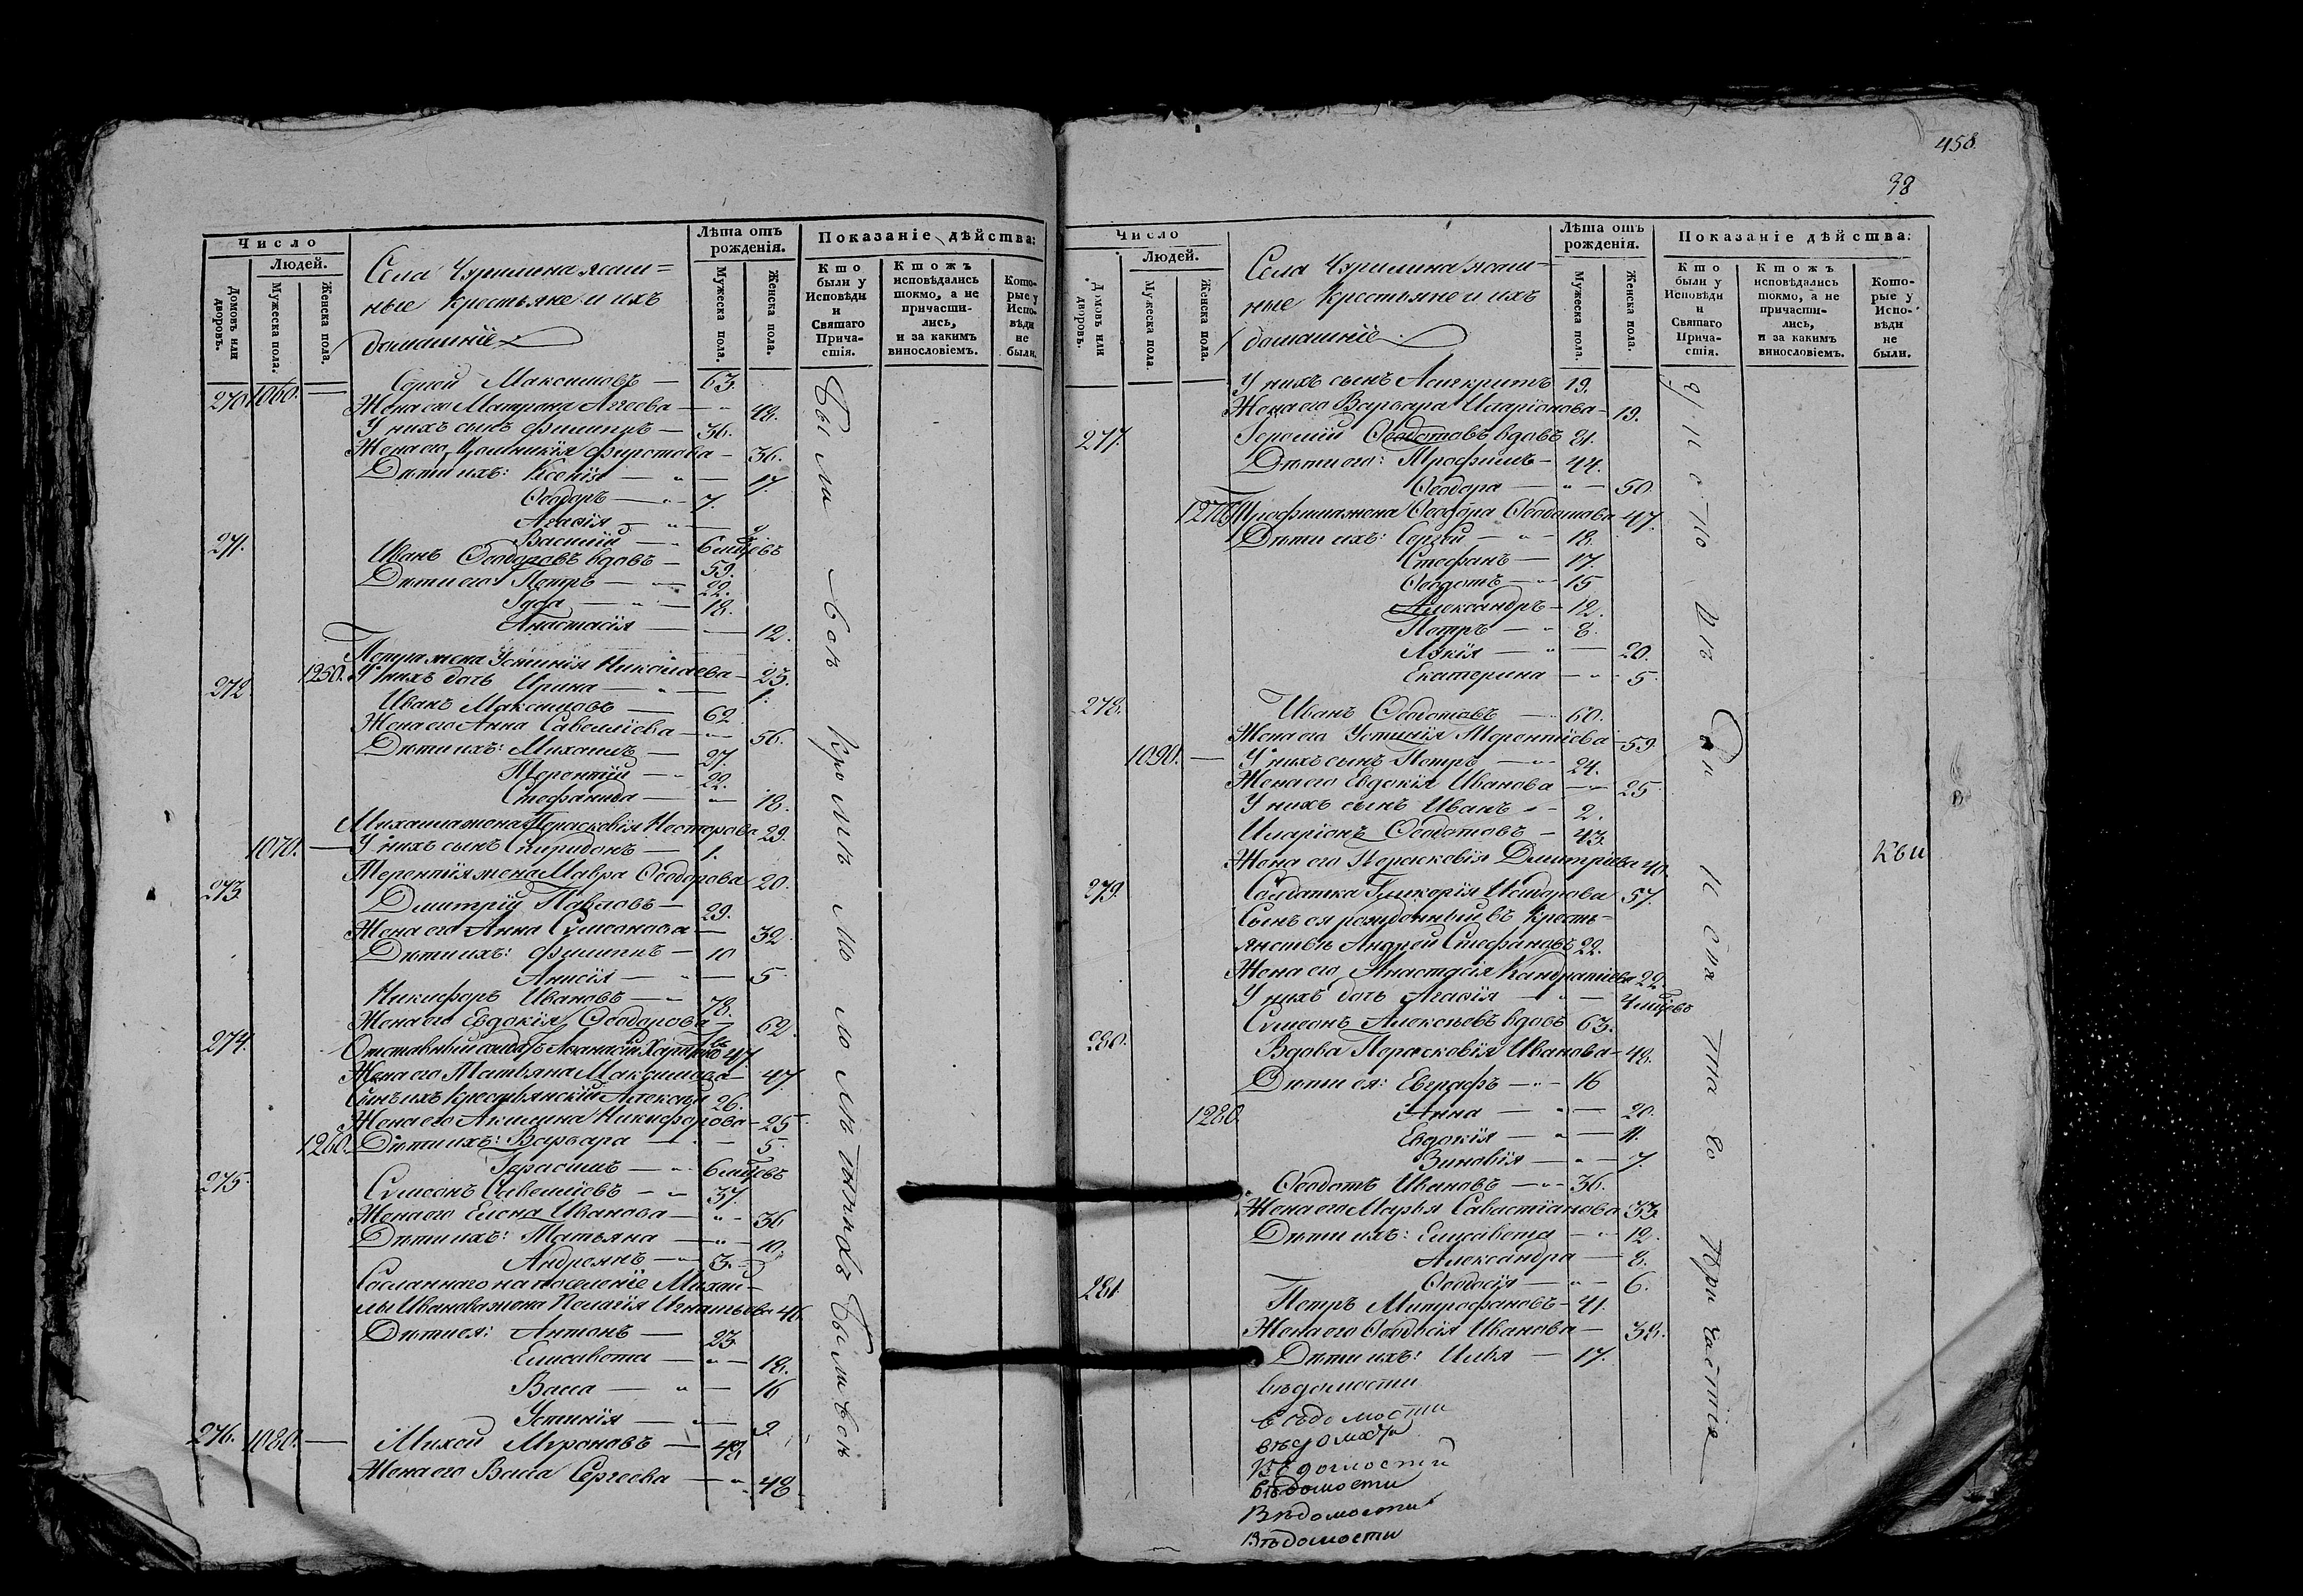 458.
38
Число
Людей.
Домовъ или дворовъ.
Мужеска пола.
Женска пола.
Села Чурилина ясаш=
ные крестьяне и ихъ
домашніе
Лѣта отъ рожденія.
Мужеска пола.
Женска пола.
Показаніе дѣйства:
Кто были у Исповѣди и Святаго Прича-стія.
Ктожъ исповѣдались токмо, а не причасти-лись, и за какимъ винословіемъ.
Кото-рые у Испо-вѣди не были.
270. 1060. — Максимовъ — 63.
Жена его Матрона Агеева — 48.
У нихъ сынъ Филиппъ — 36.
Жена его Фирстова — 36.
Дѣти ихъ: Ксенія — 17.
Ѳеодоръ — 7.
Агаѳія —
Василій — 6 мцевъ
271. Иванъ Ѳеодоровъ вдовъ — 59.
Дѣти его: Петръ — 22.
Іуда — 18.
Анастасія — 12.
Петра жена Устинія Николаева — 23.
1250. У нихъ дочь Ирина — 1.
272. Иванъ Максимовъ — 62.
Жена его Анна Савеліева — 56.
Дѣти ихъ: Михаилъ — 27.
Терентій — 22.
Стефанида — 18.
Михаила жена Парасковія Несторова 29.
1070. — У нихъ сынъ Спиридонъ — 1.
Терентія жена Мавра Ѳеодорова 20.
273. Дмитрій Павловъ — 29.
Жена его Анна Симеонова — 32.
Дѣти ихъ: Филиппъ — 10
Анисія — 5.
Никифоръ Ивановъ — 78.
Жена его Евдокія Ѳеодорова — 62.
274. Отставный солдатъ Аѳанасій 47.
Жена его Татьяна Максимова — 47.
Сынъ ихъ крестьянскій Алексѣй 26.
Жена его Акилина Никифорова — 25.
1260. Дѣти ихъ: Варвара — 5.
Герасимъ — 6 мцевъ
275. Симеонъ Савеліевъ — 37.
Жена его Елена Иванова — 36
Дѣти ихъ: Татьяна — 10.
Андреянъ — 3.
Сосланнаго на поселеніе Михай=
лы Иванова жена Пелагія Игнатьева 46.
Дѣти ея: Антонъ — 23.
Елисавета — 18.
Васса — 16
Устинія — 9.
276. 1080. — Михей Мироновъ — 48.
Жена его Васса Сергеева — 48
Были все кромѣ малолѣтныхъ Были все
Число
Людей.
Домовъ или дворовъ.
Мужеска пола
Женска пола.
Села Чурилина ясаш=
ные крестьяне и ихъ
домашніе
Лѣта отъ рожденія.
Мужеска пола.
Женска пола.
Показаніе дѣйства:
Кто были у Исповѣди и Святаго Прича-стія.
Ктожъ исповѣдались токмо, а не причасти-лись, и за какимъ винословіемъ.
Кото-рые у Испо-вѣди не были.
У нихъ сынъ Асигкритъ 19.
Жена его Варвара Иларіонова — 19.
277. Ѳедотовъ вдовъ 81.
Дѣти его: Трофимъ — 44.
Ѳеодора — 50.
1270. Трофима жена Ѳеодора Ѳедотова 47.
Дѣти ихъ: Сергей — 18.
Стефанъ — 17.
Ѳеодотъ — 15
Александръ — 12.
Петръ — 8.
Лукія — 20.
Екатерина — 5.
278. Иванъ Ѳеодотовъ — 60.
Жена его Устинія Терентіева — 59.
1090. — У нихъ сынъ Петръ — 24.
Жена его Евдокія Иванова — 25
У нихъ сынъ Иванъ — 2.
Иларіонъ Ѳеодотовъ — 43.
Жена его Парасковія Дмитріева 40.
279. Солдатка Гликерія Исидорова 57.
Сынъ ея рожденный въ кресть=
янствѣ Андрей Стефановъ 22.
Жена его Анастасія Кандратіева 22.
У нихъ дочь Агаѳія — 4 мцевъ
Симеонъ Алексѣевъ вдовъ 63.
280. Вдова Парасковія Иванова — 48.
Дѣти ея: Евграфъ — 16
1280. Анна — 20.
Евдокія — 11.
Зиновія — 7.
Ѳеодотъ Ивановъ — 36.
Жена его Марья Савастіанова 33.
Дѣти ихъ: Елисавета — 12.
Александра — 8.
Ѳеодосія — 6.
281. Петръ Митрофановъ — 41.
Жена его Ѳеодосія Иванова — 38.
Дѣти ихъ: Илья — 17.
вѣдомости
вѣдомости
вѣдомости
вѣдомости
вѣдомости
Вѣдомости
Вѣдомости
причастія